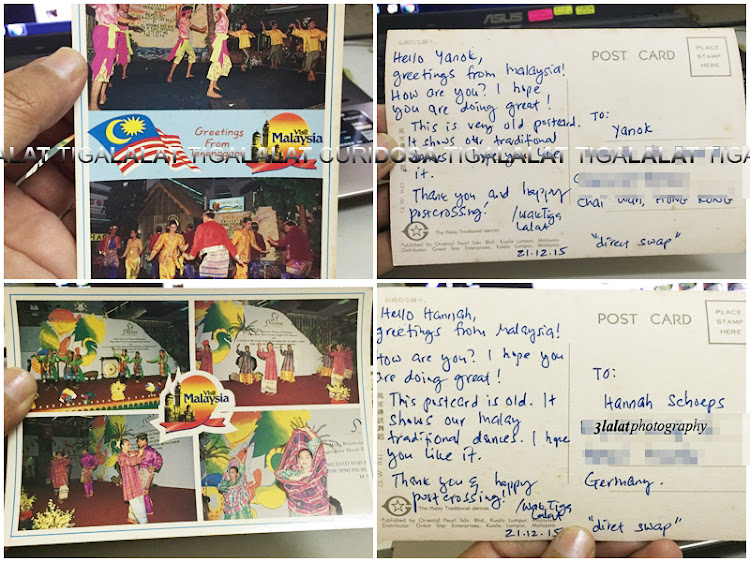 Greetings
From
Terengganu
Visit
Malaysia
ASUS
POST CARD
PLACE
STAMP
HERE
Hello Yanok,
greetings from malaysia!
How are you? I hope
you are doing great!
This is very old postcard.
It shows our traditional
dances. I hope you like
it.
Thank you and happy
postcrossing!
/wakTiga
Lalat
21.12.15
To:
Yanok
Chai Wan, HONG KONG
"diret swap"
The Malay Traditional dances.
Published by Oriental Pearl Sdn. Bhd., Kuala Lumpur, Malaysia
Distributor: Great Star Enterprises, Kuala Lumpur, Malaysia
TIGALALAT TIGALALAT
TIGALALAT
Visit
Malaysia
POST CARD
PLACE
STAMP
HERE
Hello Hannah,
greetings from Malaysia!
How are you? I hope you
are doing great!
This postcard is old. It
shows our malay
traditional dances. I hope
you like it.
Thank you & happy
postcrossing!
/wakTiga
Lalat
21.12.15
To:
Hannah Schoeps
3lalatphotography
Germany.
"diret swap"
The Malay Traditional dances.
Published by Oriental Pearl Sdn. Bhd., Kuala Lumpur, Malaysia
Distributor: Great Star Enterprises, Kuala Lumpur, Malaysia